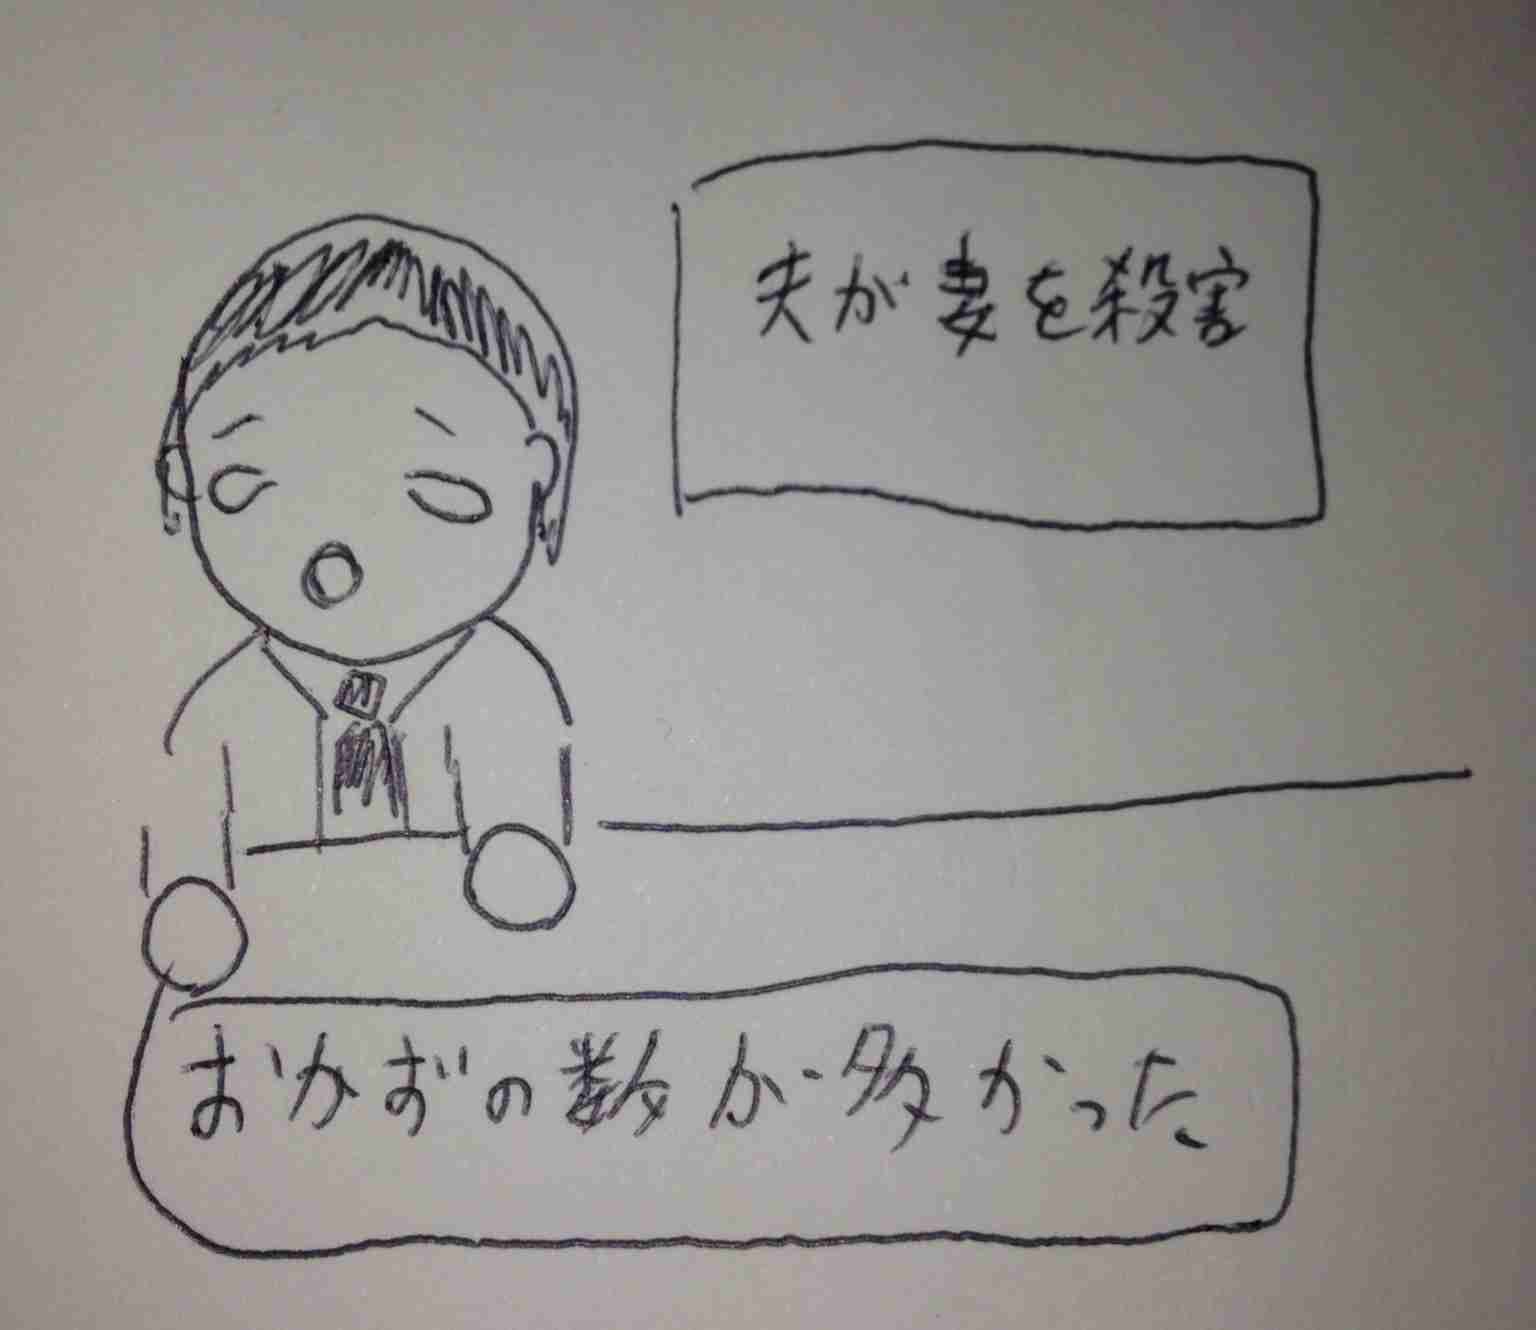 夫が妻を殺害
おかずの数が多かった